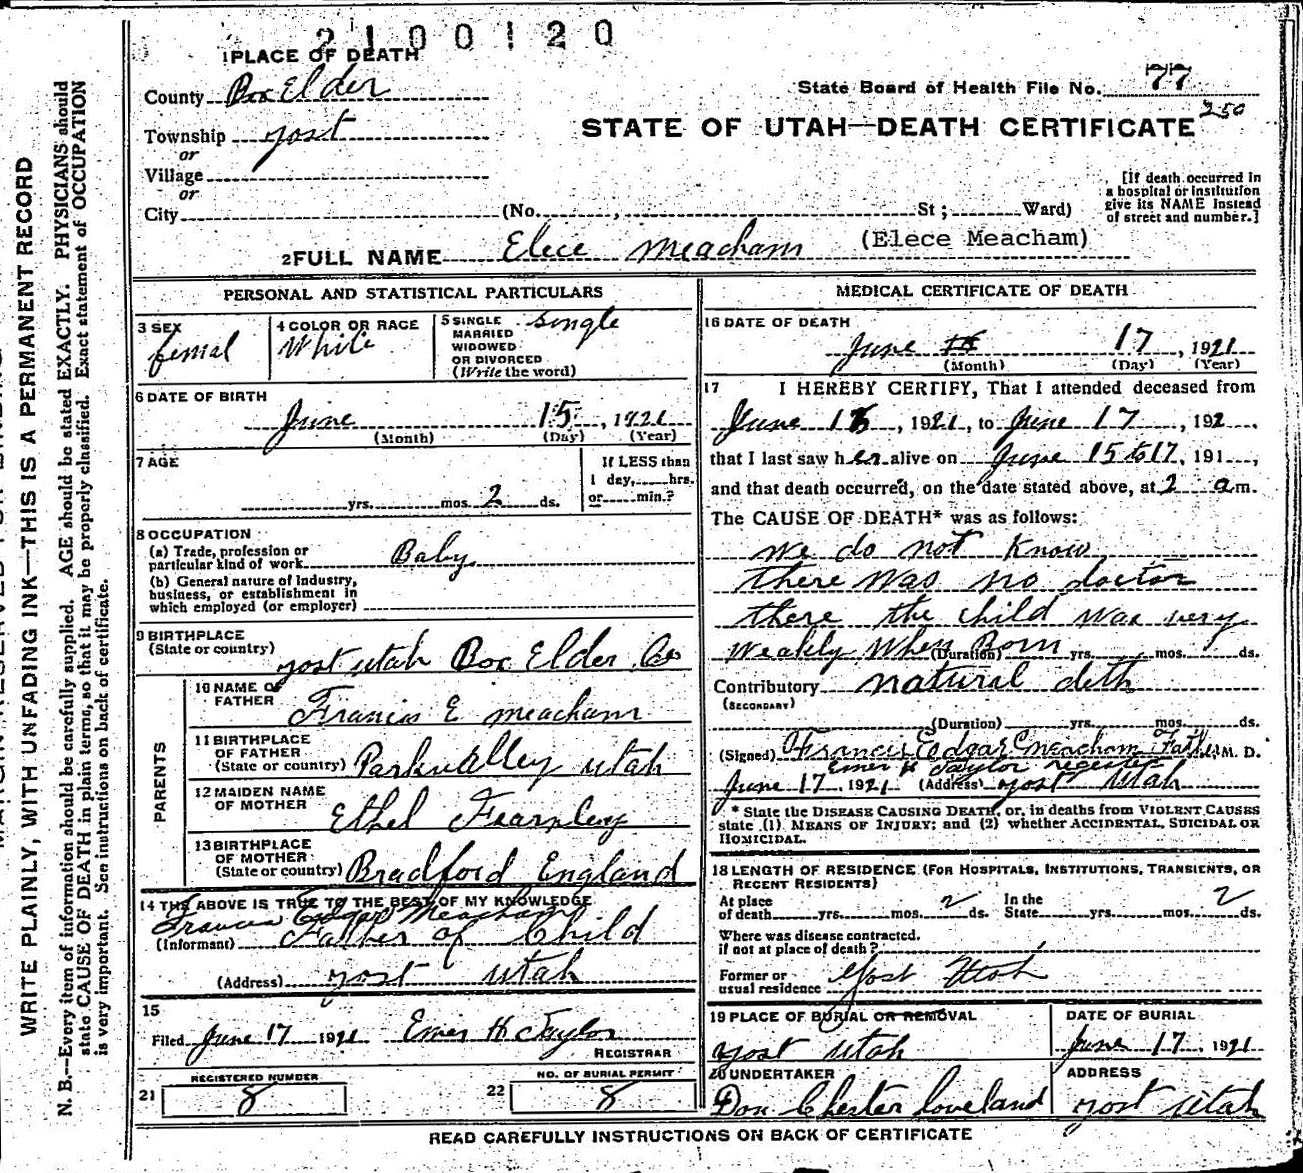 2100120
1 PLACE OF DEATH
County Box Elder
State Board of Health File No. 77
250
Township yost
or
STATE OF UTAH—DEATH CERTIFICATE
Village
or
City (No. , St ; Ward)
[If death occurred in
a hospital or institution
give its NAME instead
of street and number.]
2 FULL NAME Elece Meacham (Elece Meacham)
PERSONAL AND STATISTICAL PARTICULARS
3 SEX
femal
4 COLOR OR RACE
White
5 SINGLE
MARRIED
WIDOWED
OR DIVORCED
(Write the word)
single
6 DATE OF BIRTH
June 15, 1921
(Month) (Day) (Year)
7 AGE
yrs. mos. 2 ds.
If LESS than
1 day, hrs.
or min.?
8 OCCUPATION
(a) Trade, profession or
particular kind of work Baby
(b) General nature of Industry,
business, or establishment in
which employed (or employer)
9 BIRTHPLACE
(State or country) yost utah Box Elder Co
PARENTS
10 NAME OF
FATHER Francis E meacham
11 BIRTHPLACE
OF FATHER
(State or country) Parkvalley utah
12 MAIDEN NAME
OF MOTHER Ethel Fearnley
13 BIRTHPLACE
OF MOTHER
(State or country) Bradford England
14 THE ABOVE IS TRUE TO THE BEST OF MY KNOWLEDGE
Francis Edgar Meacham
(Informant) Father of Child
(Address) yost utah
15
Filed June 17 1921 Emer H Taylor
REGISTRAR
21 REGISTERED NUMBER 8
22 NO. OF BURIAL PERMIT 8
MEDICAL CERTIFICATE OF DEATH
16 DATE OF DEATH
June 17, 1921
(Month) (Day) (Year)
17 I HEREBY CERTIFY, That I attended deceased from
June 15, 1921, to June 17, 192
that I last saw her alive on June 15 to 17, 191
and that death occurred, on the date stated above, at 2 a m.
The CAUSE OF DEATH* was as follows:
we do not know
there was no doctor
there the child was very
weakly when Born
(Duration) yrs. mos. ds.
Contributory natural deth
(SECONDARY)
(Duration) yrs. mos. ds.
(Signed) Francis Edgar Meacham Father, M. D.
Emer H Taylor register
June 17 1921 (Address) yost utah
* State the DISEASE CAUSING DEATH, or, in deaths from VIOLENT CAUSES
state (1) MEANS OF INJURY; and (2) whether ACCIDENTAL, SUICIDAL OR
HOMICIDAL.
18 LENGTH OF RESIDENCE (FOR HOSPITALS, INSTITUTIONS, TRANSIENTS, OR
RECENT RESIDENTS)
At place
of death yrs. mos. 2 ds.
In the
State yrs. mos. 2 ds.
Where was disease contracted,
if not at place of death?
Former or
usual residence Yost Utah
19 PLACE OF BURIAL OR REMOVAL
yost utah
DATE OF BURIAL
June 17, 1921
20 UNDERTAKER
Don Chester Loveland
ADDRESS
yost utah
READ CAREFULLY INSTRUCTIONS ON BACK OF CERTIFICATE
WRITE PLAINLY, WITH UNFADING INK—THIS IS A PERMANENT RECORD
N. B.—Every item of information should be carefully supplied. AGE should be stated EXACTLY. PHYSICIANS should
state CAUSE OF DEATH in plain terms, so that it may be properly classified. Exact statement of OCCUPATION
is very important. See instructions on back of certificate.